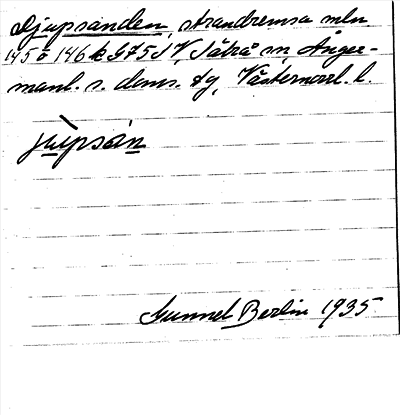 Djupsanden, strandremsa mln
145 o 146 k G75SV, Säbrå sn, Ånger-
manl. s. doms. tg, Västernorrl. l.
jùpsàn
Gunnel Berlin 1935